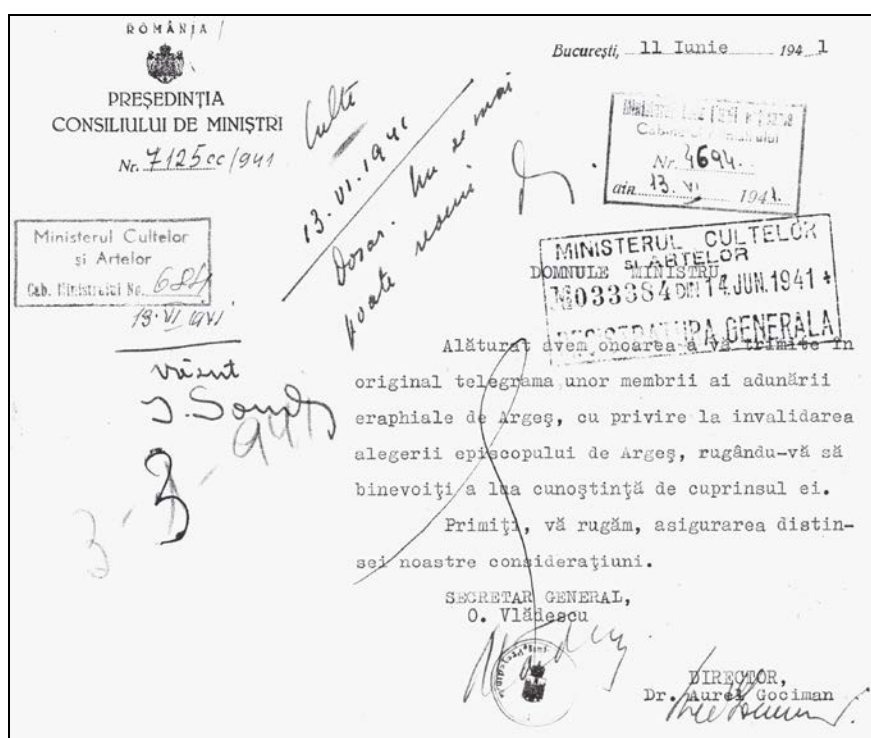 ROMÂNIA
PREŞEDINŢIA
CONSILIULUI DE MINIŞTRI
Nr. 7125 cc/941
Bucureşti, 11 Iunie 1941
Culte
13.VI.1941
Dosar. Nu se mai
poate reveni
Cabinetul Ministrului
Nr. 4694.
din 13. VI 1941.
Ministerul Cultelor
şi Artelor
Cab. Ministrului No. 684
13·VI 1941
văzut
MINISTERUL CULTELOR
ŞI ARTELOR
№ 033384 DIN 14.JUN.1941
REGISTRATURA GENERALA
DOMNULE MINISTRU,
Alăturat avem onoarea a vă trimite în
original telegrama unor membrii ai adunării
eraphiale de Argeş, cu privire la invalidarea
alegerii episcopului de Argeş, rugându-vă să
binevoiţi a lua cunoştinţă de cuprinsul ei.
Primiţi, vă rugăm, asigurarea distin-
sei noastre consideraţiuni.
SECRETAR GENERAL,
O. Vlădescu
DIRECTOR,
Dr. Aurel Gociman